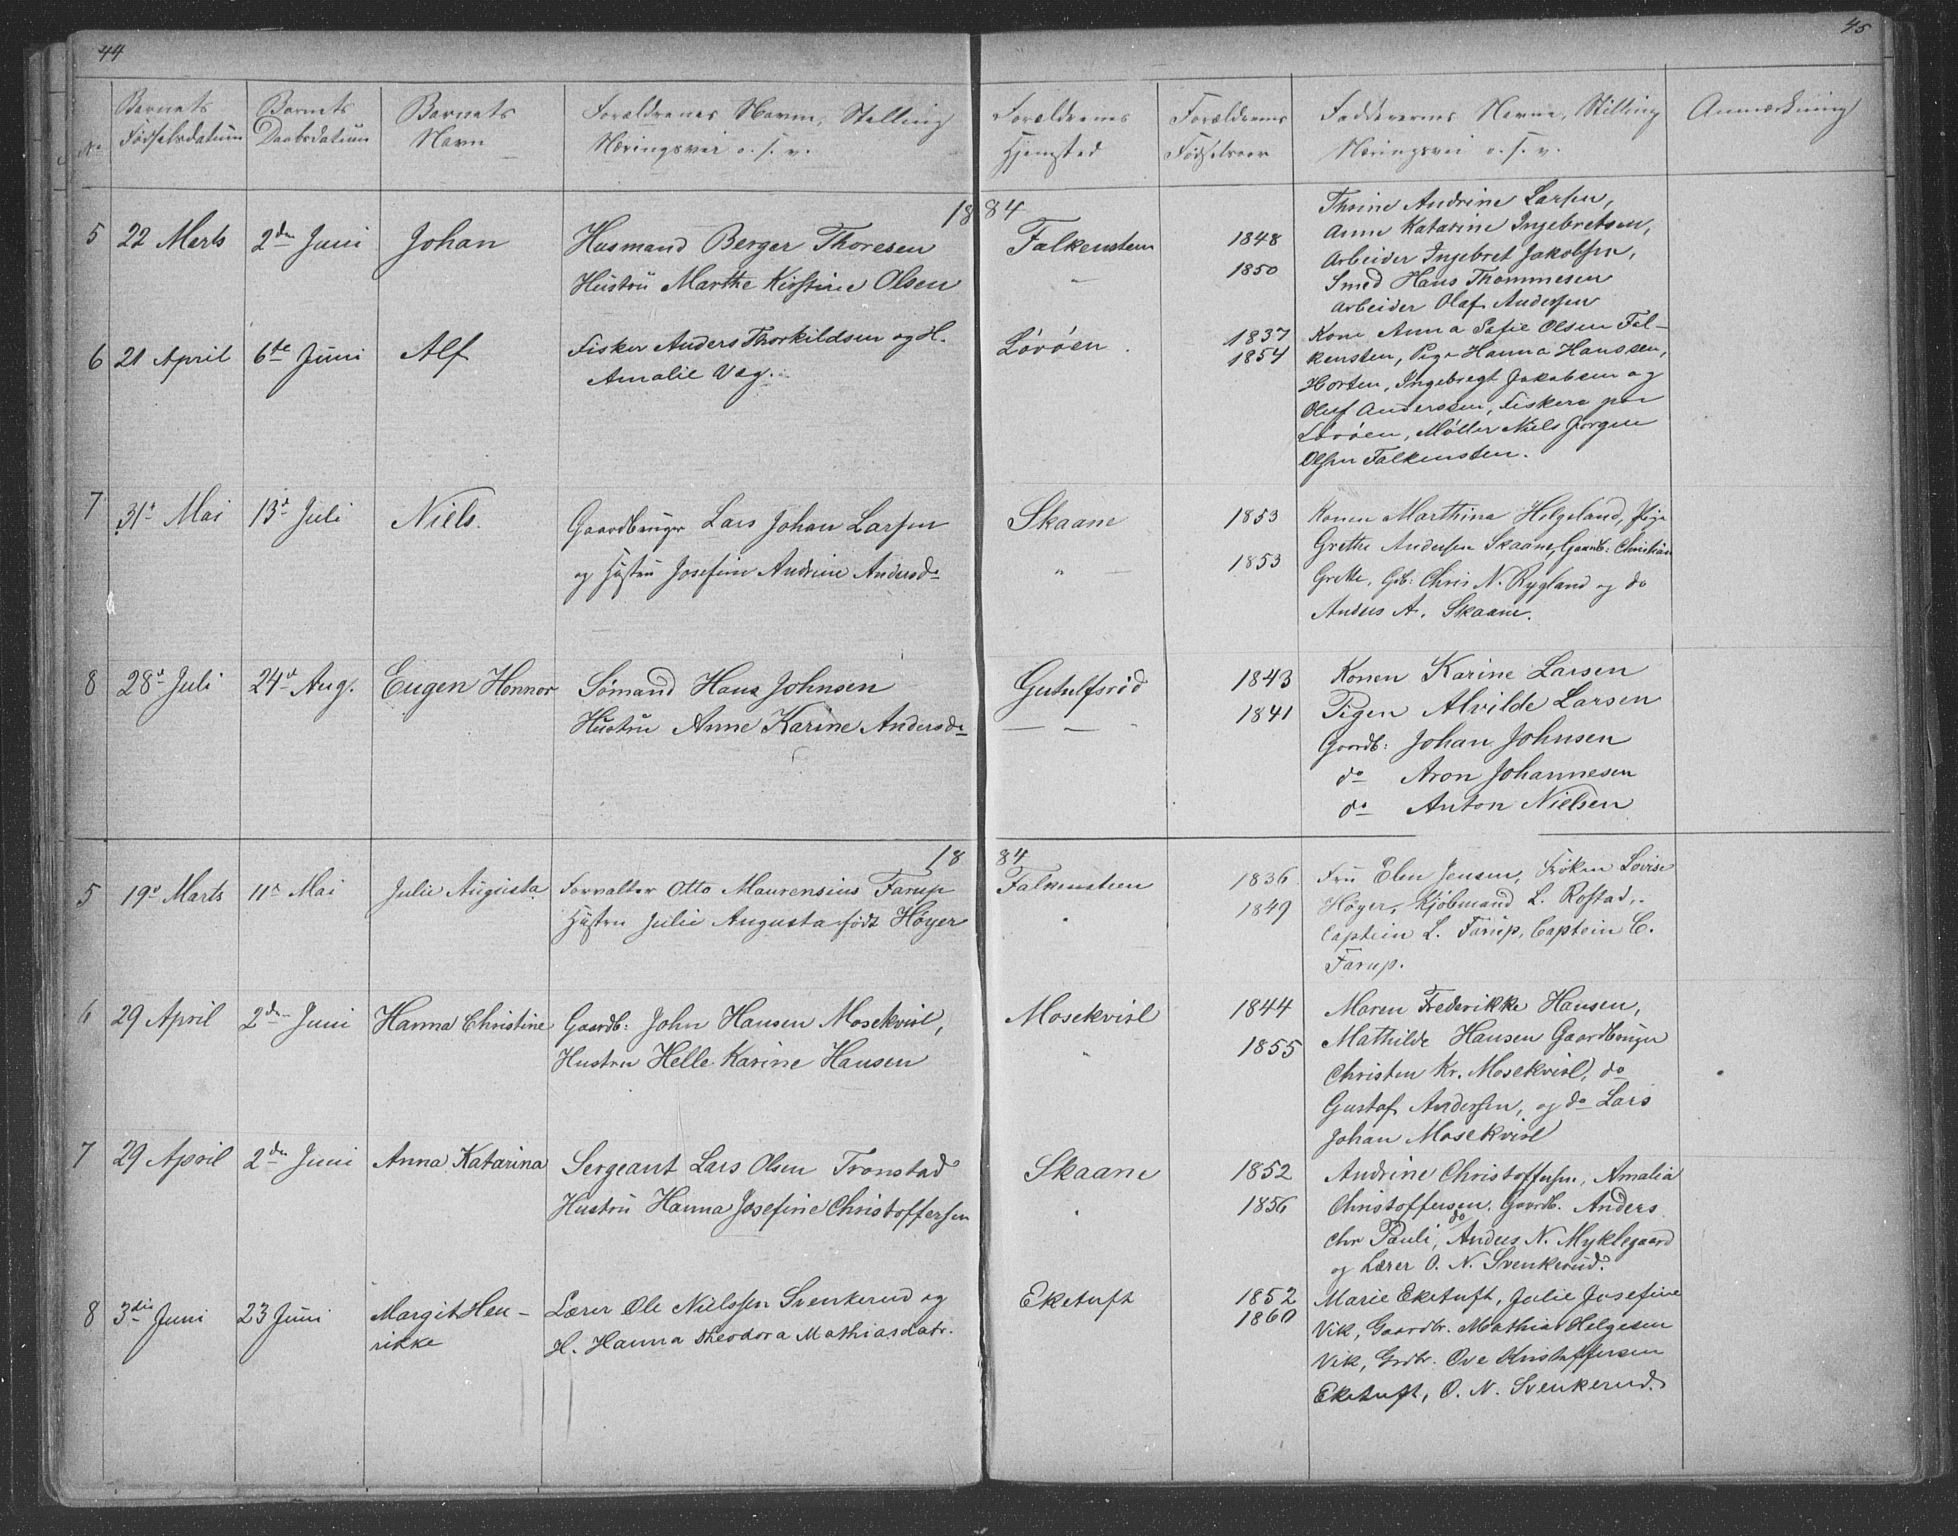 44
45
No Barnets Fødselsdatum Barnets Daabsdatum Barnets Navn Forældrenes Navne, Stilling Næringsvei o. s. v. Forældrenes Hjemsted Forældrenes Fødselsaar Faddernes Navne, Stilling Næringsvei o. s. v. Anmærkning
1884
5 22 Marts 2den Juni Johan
Husmand Berger Thoresen
Hustru Marthe Kirstine Olsen
Falkensten
"
1848
1850
Thrine Andrine Larsen,
Anne Katarine Ingebretsen,
Arbeider Ingebret Jakobsen,
Smed Hans Thommesen
Arbeider Olaf Andersen
6 21 April 6te Juni Alf
Fisker Anders Thorkildsen og H.
Amalie Vag.
Løvøen.
1837
1854
Kone Anna Sofie Olsen Fal-
kensten, Pige Hanna Hanssen,
Horten, Ingebregt Jakobsen og
Oluf Anderssen, Fiskere paa
Løvøen, Møller Niels Jørgen
Olsen Falkensten.
7 31t Mai 13d Juli Niels.
Gaardbruger Lars Johan Larsen
og Hustru Josefine Andrine Andersdr
Skaane
" —
1853
1853
Konen Marthina Helgeland, Pige
Grethe Andersen Skaane, Gaardb: Christian
Grette, Gb: Chris N. Rygland og do
Anders A. Skaane.
8 28d Juli 24d Aug. Eugen Honnor
Sømand Hans Johnsen
Hustru Anne Karine Andersdr
Gutulfsrød
— — "
1843
1841
Konen Karine Larsen
Pigen Alvilde Larsen
Gaardb: Johan Johnsen
do Aron Johannesen
do Anton Nielsen
1884
5 19d Marts 11d Mai Julie Augusta
Forvalter Otto Maurensius Farup
Hustru Julie Augusta født Høyer
Falkensteen
"
1836
1849
Fru Elen Jensen, Frøken Lovise
Høyer, Kjøbmand L. Rostad,
Captein L. Farup, Captein C.
Farup.
6 29 April 2den Juni Hanna Christine
Gaardb: John Hansen Mosekvisl,
Hustru Helle Karine Hansen
Mosekvisl
"
1844
1855
Maren Frederikke Hansen,
Mathilde Hansen Gaardbruger
Christen Kr. Mosekvisl, do
Gustaf Andersen, og do Lars
Johan Mosekvisl
7 29 April 2den Juni Anna Katarina
Sergeant Lars Olsen Tronstad
Hustru Hanna Josefine Christoffersen
Skaane
"
1852
1856
Andrine Christoffersen, Amalia
Christoffersen, Gaardb. Anders
Chr Pauli, do Anders N. Myklegaard
og Lærer O. N. Svenkerud.
8 3die Juni 23 Juni Margit Hen-
rikke
Lærer Ole Nielssen Svenkerud og
H. Hanna Theodora Mathiasdatr.
Eketuft
1852
1860
Marie Eketuft, Julie Josefine
Vik, Gaardbr. Mathias Helgesen
Vik, Grdbr. Ove Kristoffersen
Eketuft, O. N. Svenkerud.